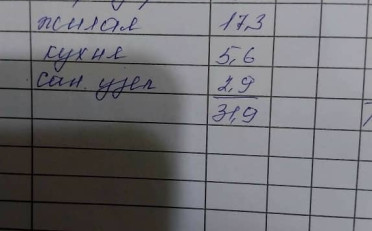 жилая 17,3
кухня 5,6
сан. узел 2,9
31,9